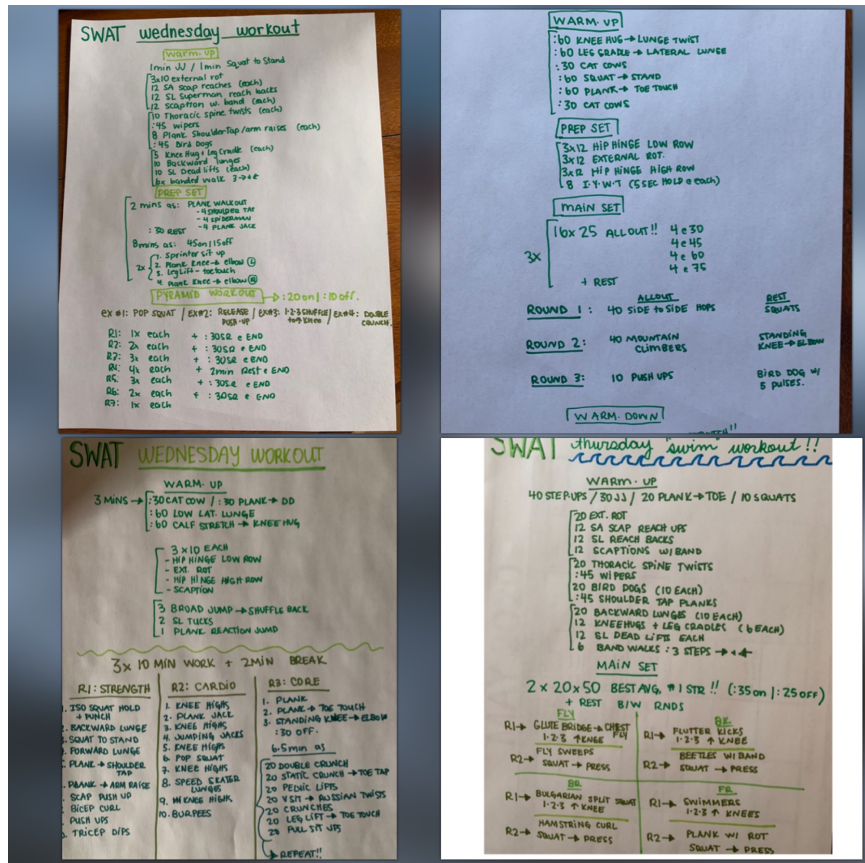 SWAT wednesday workout
warm-up
1min JJ / 1min Squat to Stand
3x10 external rot
12 SA scap reaches (each)
12 SL Superman reach backs
12 scaption w. band (each)
10 Thoracic spine twists (each)
:45 wipers
8 Plank Shoulder-Tap/arm raises (each)
:45 Bird Dogs
5 Knee Hug + Leg Cradle (each)
10 Backward lunges
10 SL Dead lifts (each)
6x banded walk 3→←
PREP SET
2 mins as: PLANK WALKOUT
- 4 SHOULDER TAP
- 4 SPIDERMAN
- 4 PLANK JACK
:30 REST
8mins as: 45on|15off
2x
1. Sprinter sit up
2. Plank Knee→ elbow (L)
3. Leg Lift - toe touch
4. Plank Knee→ elbow (R)
PYRAMID WORKOUT → :20on|:10off.
ex #1: POP SQUAT / EX#2: RELEASE PUSH-UP / EX#3: 1-2-3 SHUFFLE Knee / EX#4: DOUBLE CRUNCH.
R1: 1x each + :30SR e END
R2: 2x each + :30SR e END
R3: 3x each + :30SR e END
R4: 4x each + 2min Rest e END
R5: 3x each + :30SR e END
R6: 2x each + :30SR e END
R7: 1x each
WARM-UP
:60 KNEE HUG→ LUNGE TWIST
:60 LEG CRADLE → LATERAL LUNGE
:30 CAT COWS
:60 SQUAT → STAND
:60 PLANK→ TOE TOUCH
:30 CAT COWS
PREP SET
3x12 HIP HINGE LOW ROW
3x12 EXTERNAL ROT.
3x12 HIP HINGE HIGH ROW
8 I.Y.W.T (5SEC HOLD e each)
MAIN SET
3x
16x 25 ALLOUT!! 4e30
4e45
4e60
4e75
+ REST
ALLOUT REST
ROUND 1: 40 SIDE to SIDE HOPS SQUATS
ROUND 2: 40 MOUNTAIN CLIMBERS STANDING KNEE→ELBOW
ROUND 3: 10 PUSH UPS BIRD DOG W/ 5 PULSES.
WARM-DOWN
SWAT WEDNESDAY WORKOUT
WARM-UP
3 MINS → :30 CAT COW / :30 PLANK→ DD
:60 LOW LAT. LUNGE
:60 CALF STRETCH → KNEE HUG
3x10 EACH
- HIP HINGE LOW ROW
- EXT. ROT
- HIP HINGE HIGH ROW
- SCAPTION
3 BROAD JUMP→ SHUFFLE BACK
2 SL TUCKS
1 PLANK REACTION JUMP
3x 10 MIN WORK + 2MIN BREAK
R1: STRENGTH
. ISO SQUAT HOLD + PUNCH
. BACKWARD LUNGE
. SQUAT TO STAND
. FORWARD LUNGE
. PLANK→SHOULDER TAP
. PLANK → ARM RAISE
. SCAP PUSH UP
. BICEP CURL
. PUSH UPS
. TRICEP DIPS
R2: CARDIO
1. KNEE HIGHS
2. PLANK JACK
3. KNEE HIGHS
4. JUMPING JACKS
5. KNEE HIGHS
6. POP SQUAT
7. KNEE HIGHS
8. SPEED SKATER LUNGES
9. KNEE HIGHS
10. BURPEES
R3: CORE
1. PLANK
2. PLANK→ TOE TOUCH
3. STANDING KNEE→ELBOW
:30 OFF.
6.5min as
20 DOUBLE CRUNCH
20 STATIC CRUNCH→TOE TAP
20 PELVIC LIFTS
20 V SIT → RUSSIAN TWISTS
20 CRUNCHES
20 LEG LIFT→ TOE TOUCH
20 FULL SIT UPS
REPEAT!!
SWAT thursday "swim" workout!!
WARM-UP
40 STEP-UPS / 30 JJ / 20 PLANK→TOE / 10 SQUATS
20 EXT. ROT
12 SA SCAP REACH UPS
12 SL REACH BACKS
12 SCAPTIONS W/BAND
20 THORACIC SPINE TWISTS
:45 WIPERS
20 BIRD DOGS (10 EACH)
:45 SHOULDER TAP PLANKS
20 BACKWARD LUNGES (10 EACH)
12 KNEEHUGS + LEG CRADLES (6 EACH)
12 SL DEAD LIFTS EACH
6 BAND WALKS : 3 STEPS →←
MAIN SET
2 x 20x50 BEST AVG. #1 STR!! (:35on | :25 OFF)
+ REST B/W RNDS
FLY
R1→ GLUTE BRIDGE→CHEST FLY
1-2-3 ↑ KNEE
FLY SWEEPS
R2→ SQUAT → PRESS
BK
R1→ FLUTTER KICKS
1-2-3 ↑ KNEE
BEETLES W/ BAND
R2→ SQUAT → PRESS
BR
R1→ BULGARIAN SPLIT SQUAT
1-2-3 ↑ KNEE
HAMSTRING CURL
R2→ SQUAT → PRESS
FR
R1→ SWIMMERS
1-2-3 ↑ KNEES
R2→ PLANK W/ ROT
SQUAT → PRESS